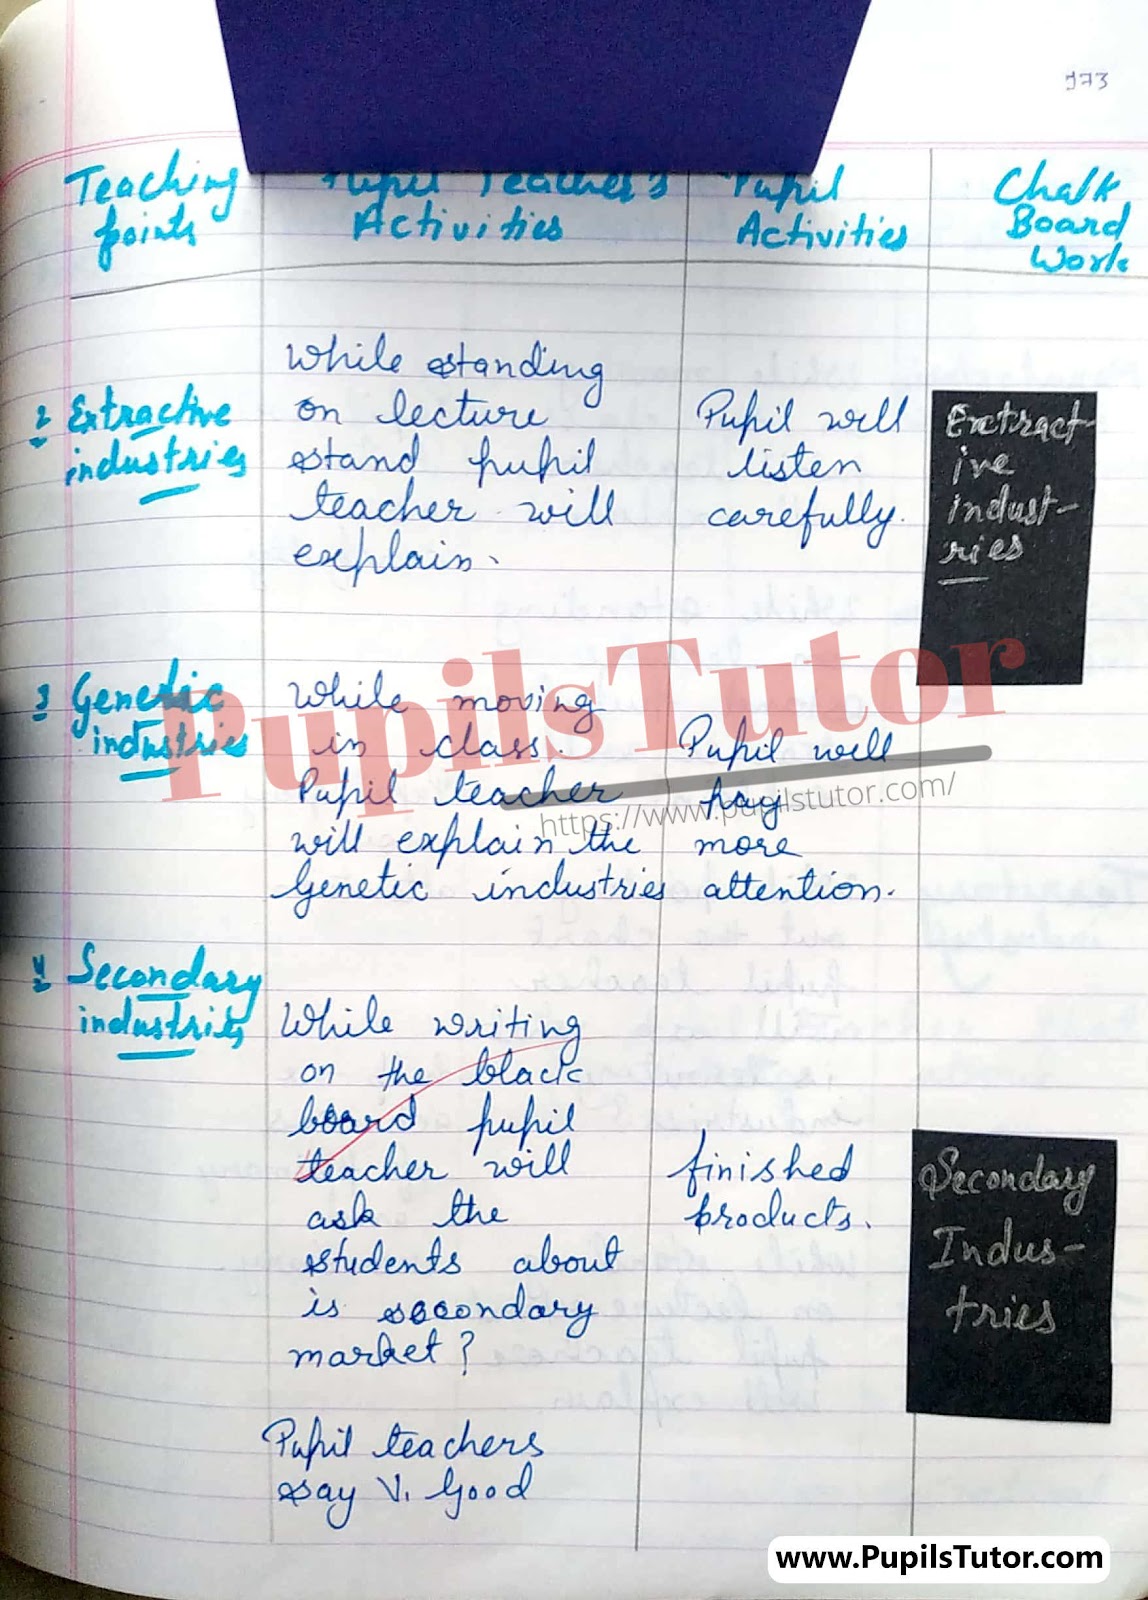 173
Teaching
points
Pupil Teacher's
Activities
Pupil
Activities
Chalk
Board
Work
2 Extractive
industries
While standing
on lecture
stand pupil
teacher will
explain.
Pupil will
listen
carefully.
Extract-
ive
indust-
ries
3 Genetic
industries
While moving
in class.
Pupil teacher
will explain the
Genetic industries
Pupil will
pay
more
attention.
PupilsTutor
https://www.pupilstutor.com/
4 Secondary
industries
While writing
on the black
board pupil
teacher will
ask the
students about
is secondary
market?
finished
products.
Secondary
Indus-
tries
Pupil teachers
say V. Good
www.PupilsTutor.com